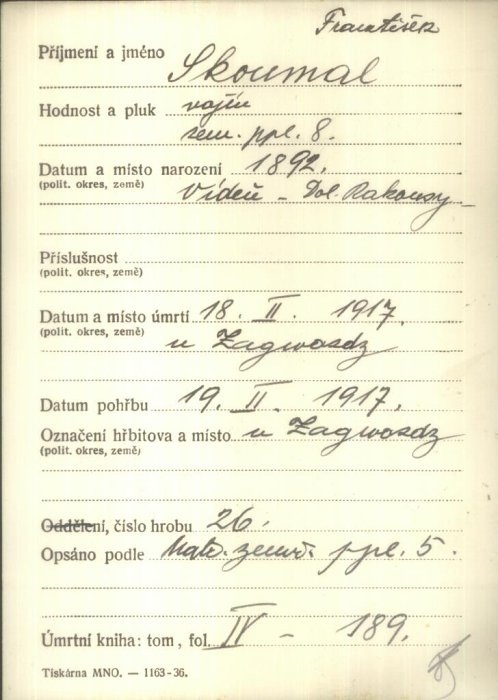 František
Příjmení a jméno Skoumal
Hodnost a pluk vojín
zem. ppl. 8.
Datum a místo narození 1892.
(polit. okres, země) Vídeň - Dol. Rakousy
Příslušnost
(polit. okres, země)
Datum a místo úmrtí 18. II. 1917.
(polit. okres, země) u Zagwosdz
Datum pohřbu 19. II. 1917.
Označení hřbitova a místo u Zagwosdz
(polit. okres, země)
Oddělení, číslo hrobu 26.
Opsáno podle ppl. 5.
Úmrtní kniha: tom, fol. IV - 189.
Tiskárna MNO. — 1163-36.